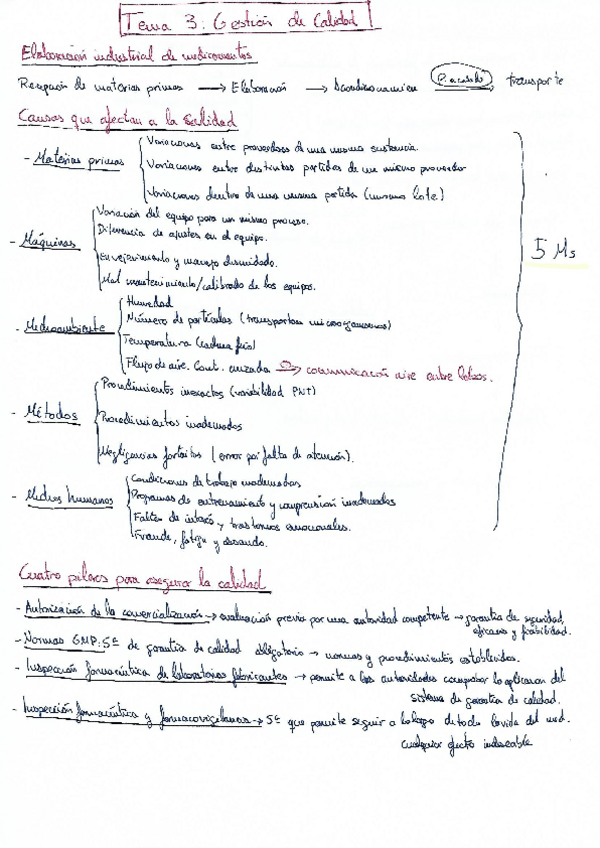 Tema 3: Gestión de Calidad
Elaboración industrial de medicamentos
Recepción de materias primas → Elaboración → Acondicionamien P. acabado transporte
Causas que afectan a la calidad
- Materias primas
Variaciones entre proveedores de una misma sustancia.
Variaciones entre distintas partidas de un mismo proveedor
Variaciones dentro de una misma partida (mismo lote)
- Máquinas
Variación del equipo para un mismo proceso.
Diferencia de ajustes en el equipo.
Envejecimiento y manejo descuidado.
Mal mantenimiento/calibrado de los equipos.
5 Ms
- Medioambiente
Humedad
Número de partículas (transportan microorganismos)
Temperatura (cadena frío)
Flujo de aire. Cont. cruzada → comunicación aire entre
- Métodos
Procedimientos inexactos (variabilidad PNT)
Procedimientos inadecuados
Negligencias fortuitas (error por falta de atención).
- Medios humanos
Condiciones de trabajo inadecuadas
Programas de entrenamiento y comprensión inadecuados
Falta de interés y trastornos emocionales.
Fraude, fatiga y descuido.
Cuatro pilares para asegurar la calidad
- Autorización de la comercialización → evaluación previa por una autoridad competente → garantía de seguridad,
eficacia y fiabilidad.
- Normas GMP: Sª de garantía de calidad obligatorio → normas y procedimientos establecidos.
- Inspección farmacéutica de laboratorios fabricantes → permite a las autoridades comprobar la aplicación del
sistema de garantía de calidad.
- Inspección farmacéutica y farmacovigilancia → Sª que permite seguir a lo largo de toda la vida del med.
cualquier efecto indeseable